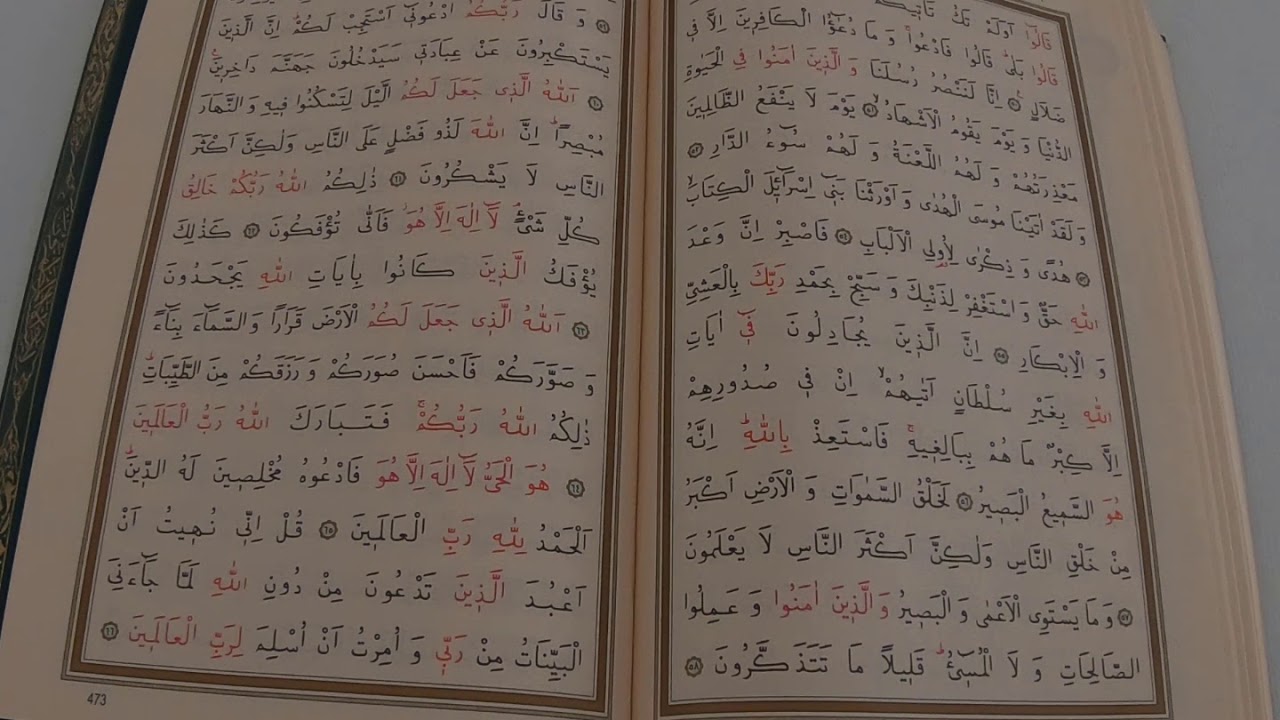 قَالُوٓا اَوَلَمْ تَكُ تَأْت۪يكُمْ
قَالُوا بَلٰىۜ قَالُوا فَادْعُواۚ وَ مَا دُعٰٓؤُا الْكَافِر۪ينَ اِلَّا ف۪ي
ضَلَالٍ ۝٥٠ اِنَّا لَنَنْصُرُ رُسُلَنَا وَ الَّذ۪ينَ اٰمَنُوا فِي الْحَيٰوةِ
الدُّنْيَا وَ يَوْمَ يَقُومُ الْاَشْهَادُۙ ۝٥١ يَوْمَ لَا يَنْفَعُ الظَّالِم۪ينَ
مَعْذِرَتُهُمْ وَ لَهُمُ اللَّعْنَةُ وَ لَهُمْ سُٓوءُ الدَّارِ ۝٥٢
وَ لَقَدْ اٰتَيْنَا مُوسَى الْهُدٰى وَ اَوْرَثْنَا بَن۪ٓي اِسْرَٓائ۪لَ الْكِتَابَۙ
۝٥٣ هُدًى وَ ذِكْرٰى لِاُو۬لِي الْاَلْبَابِ ۝٥٤ فَاصْبِرْ اِنَّ وَعْدَ
اللّٰهِ حَقٌّ وَ اسْتَغْفِرْ لِذَنْبِكَ وَ سَبِّحْ بِحَمْدِ رَبِّكَ بِالْعَشِيِّ
وَ الْاِبْكَارِ ۝٥٥ اِنَّ الَّذ۪ينَ يُجَادِلُونَ ف۪ٓي اٰيَاتِ
اللّٰهِ بِغَيْرِ سُلْطَانٍ اَتٰيهُمْۙ اِنْ ف۪ي صُدُورِهِمْ
اِلَّا كِبْرٌ مَا هُمْ بِبَالِغ۪يهِۚ فَاسْتَعِذْ بِاللّٰهِۜ اِنَّهُ
هُوَ السَّم۪يعُ الْبَص۪يرُ ۝٥٦ لَخَلْقُ السَّمٰوَاتِ وَ الْاَرْضِ اَكْبَرُ
مِنْ خَلْقِ النَّاسِ وَلٰكِنَّ اَكْثَرَ النَّاسِ لَا يَعْلَمُونَ
۝٥٧ وَ مَا يَسْتَوِي الْاَعْمٰى وَ الْبَص۪يرُ وَ الَّذ۪ينَ اٰمَنُوا وَ عَمِلُوا
الصَّالِحَاتِ وَ لَا الْمُس۪ٓيءُۜ قَل۪يلًا مَا تَتَذَكَّرُونَ ۝٥٨
۝٥٩ وَ قَالَ رَبُّكُمُ ادْعُون۪ٓي اَسْتَجِبْ لَكُمْۜ اِنَّ الَّذ۪ينَ
يَسْتَكْبِرُونَ عَنْ عِبَادَت۪ي سَيَدْخُلُونَ جَهَنَّمَ دَاخِر۪ينَ۟
۝٦٠ اَللّٰهُ الَّذ۪ي جَعَلَ لَكُمُ الَّيْلَ لِتَسْكُنُوا ف۪يهِ وَ النَّهَارَ
مُبْصِرًاۜ اِنَّ اللّٰهَ لَذُو فَضْلٍ عَلَى النَّاسِ وَلٰكِنَّ اَكْثَرَ
النَّاسِ لَا يَشْكُرُونَ ۝٦١ ذٰلِكُمُ اللّٰهُ رَبُّكُمْ خَالِقُ
كُلِّ شَيْءٍۢ لَٓا اِلٰهَ اِلَّا هُوَۘ فَاَنّٰى تُؤْفَكُونَ ۝٦٢ كَذٰلِكَ
يُؤْفَكُ الَّذ۪ينَ كَانُوا بِاٰيَاتِ اللّٰهِ يَجْحَدُونَ
۝٦٣ اَللّٰهُ الَّذ۪ي جَعَلَ لَكُمُ الْاَرْضَ قَرَارًا وَ السَّمَٓاءَ بِنَٓاءً
وَ صَوَّرَكُمْ فَاَحْسَنَ صُوَرَكُمْ وَ رَزَقَكُمْ مِنَ الطَّيِّبَاتِۜ
ذٰلِكُمُ اللّٰهُ رَبُّكُمْۚ فَتَبَارَكَ اللّٰهُ رَبُّ الْعَالَم۪ينَ
۝٦٤ هُوَ الْحَيُّ لَٓا اِلٰهَ اِلَّا هُوَ فَادْعُوهُ مُخْلِص۪ينَ لَهُ الدّ۪ينَۜ
اَلْحَمْدُ لِلّٰهِ رَبِّ الْعَالَم۪ينَ ۝٦٥ قُلْ اِنّ۪ي نُه۪يتُ اَنْ
اَعْبُدَ الَّذ۪ينَ تَدْعُونَ مِنْ دُونِ اللّٰهِ لَمَّا جَٓاءَنِيَ
الْبَيِّنَاتُ مِنْ رَبّ۪ي وَ اُمِرْتُ اَنْ اُسْلِمَ لِرَبِّ الْعَالَم۪ينَ ۝٦٦
473